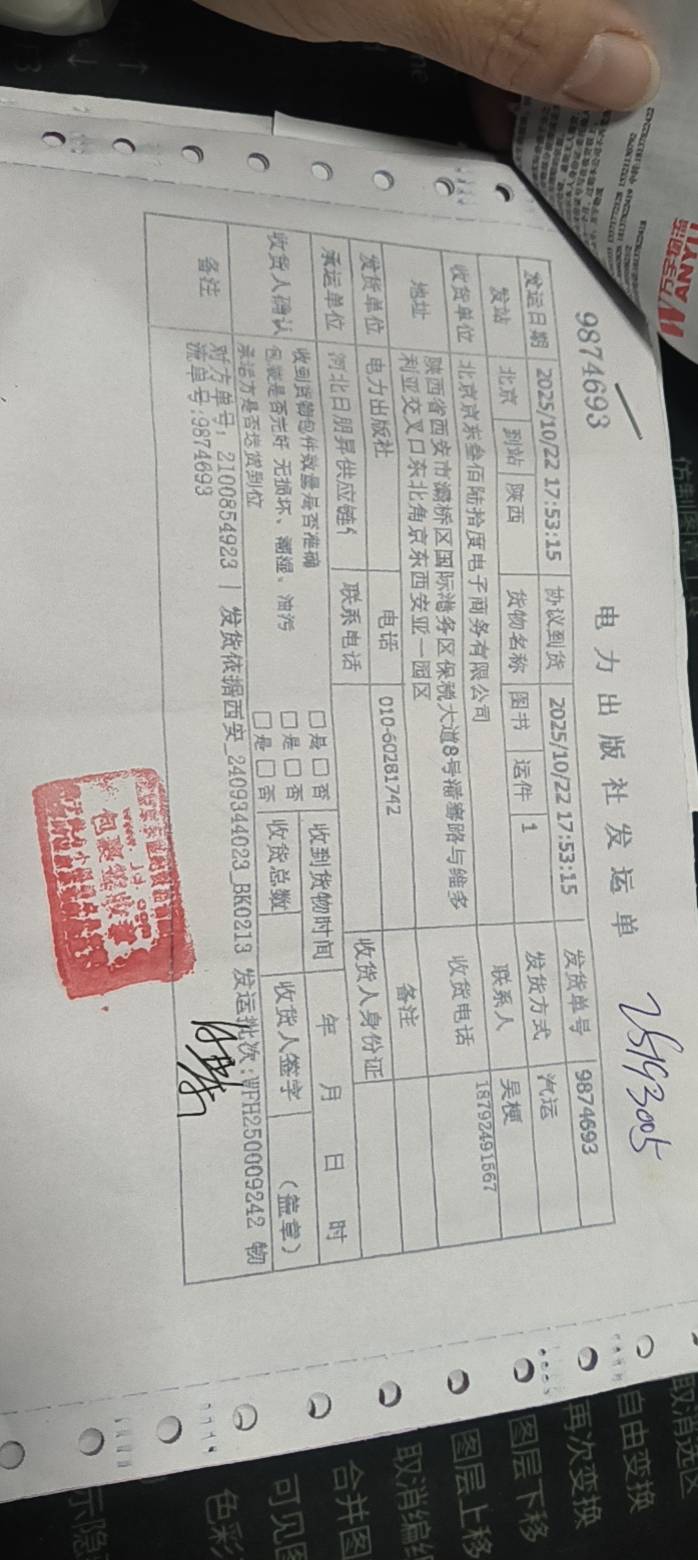 9874693
电力出版社发运单
25193005
发运日期 2025/10/22 17:53:15 协议到货 2025/10/22 17:53:15 发货单号 9874693
发站 北京 到站 陕西 货物名称 图书 运件 1 发货方式 汽运
收货单位 北京京东叁佰陆拾度电子商务有限公司 联系人 吴梗
地址 陕西省西安市灞桥区国际港务区保税大道8号潘骞路与维多
利亚交叉口东北角京东西安亚一园区 收货电话 18792491567
发货单位 电力出版社 电话 010-60281742 备注
承运单位 河北日朋昇供应链 联系电话 收货人身份证
收货人确认 收到货物包件数量是否准确 □是 □否 收到货物时间 年 月 日 时
包装是否完好 无损坏、潮湿、油污 □是 □否 收货总数 收货人签字 （盖章）
承运方是否送货到位 □是 □否
备注 对方单号：2100854923 | 发货依据西安_2409344023_BK0213 发运批次:WPH250009242 物
流单号:9874693
取消选区
自由变换
再次变换
图层下移
图层上移
取消编
合并图
可见图
色彩
示隐